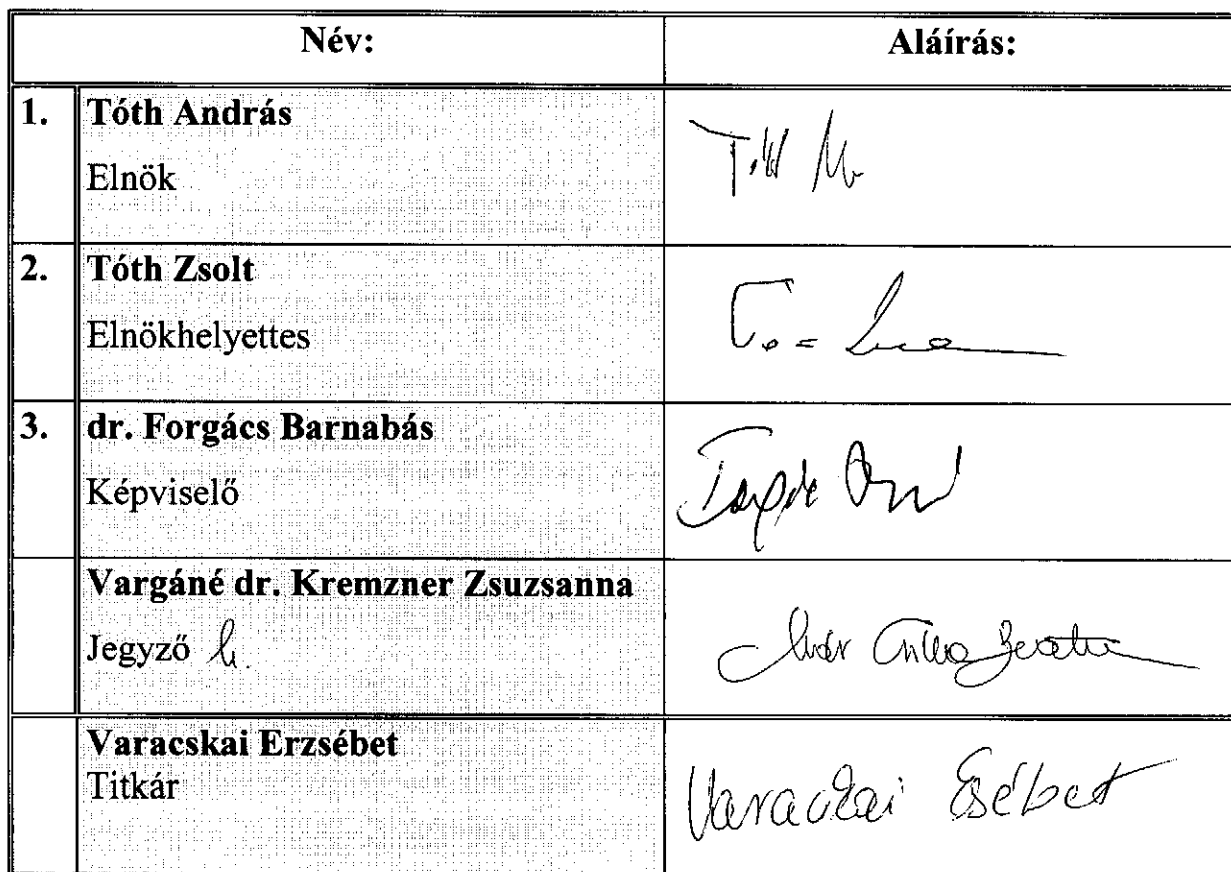 Név: Aláírás:
1. Tóth András
Elnök
2. Tóth Zsolt
Elnökhelyettes
3. dr. Forgács Barnabás
Képviselő
Vargáné dr. Kremzner Zsuzsanna
Jegyző h.
Varacskai Erzsébet
Titkár
Varacskai Erzsébet